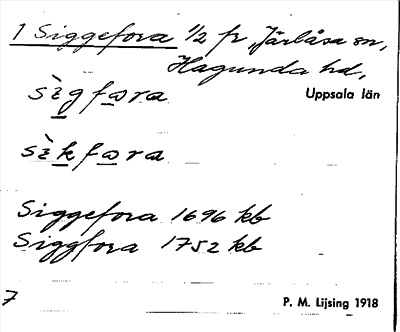 1 Siggefora 1/2 fr, Järlåsa sn,
Hagunda hd,
Uppsala län
sìgfara
sìkfara
Siggefora 1696 kb
Siggfora 1752 kb
7
P. M. Lijsing 1918